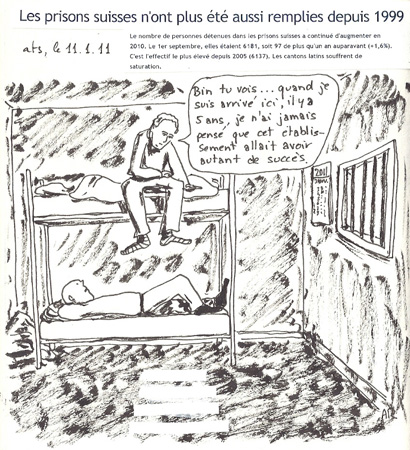 Les prisons suisses n'ont plus été aussi remplies depuis 1999
ats, le 11.1.11
Le nombre de personnes détenues dans les prisons suisses a continué d'augmenter en
2010. Le 1er septembre, elles étaient 6181, soit 97 de plus qu'un an auparavant (+1,6%).
C'est l'effectif le plus élevé depuis 2005 (6137). Les cantons latins souffrent de
saturation.
Bin tu vois... quand je
suis arrivé ici, il y a
5 ans, je n'ai jamais
pensé que cet établis-
sement allait avoir
autant de succès.
2011